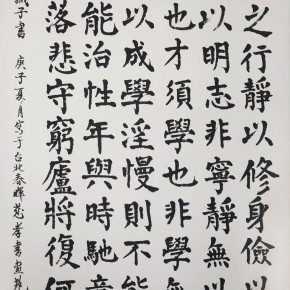 之行靜以修身儉以
以明志非寧靜無
也才須學也非學無
以成學淫慢則不能
能治性年與時馳意
落悲守窮廬將復何
子書 庚子夏月寫于台北春暉